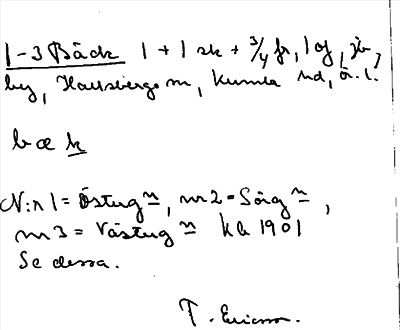 1-3 Bäck 1 + 1 sk + 3/4 fr, 1 of, jb,
by, Hallsbergs m, Kumla hd, ö. l.
bæk
N:r 1 = Östug n, nr 2 = Sörg n,
nr 3 = Västug n kla 1901
Se dessa.
T. Ericson.